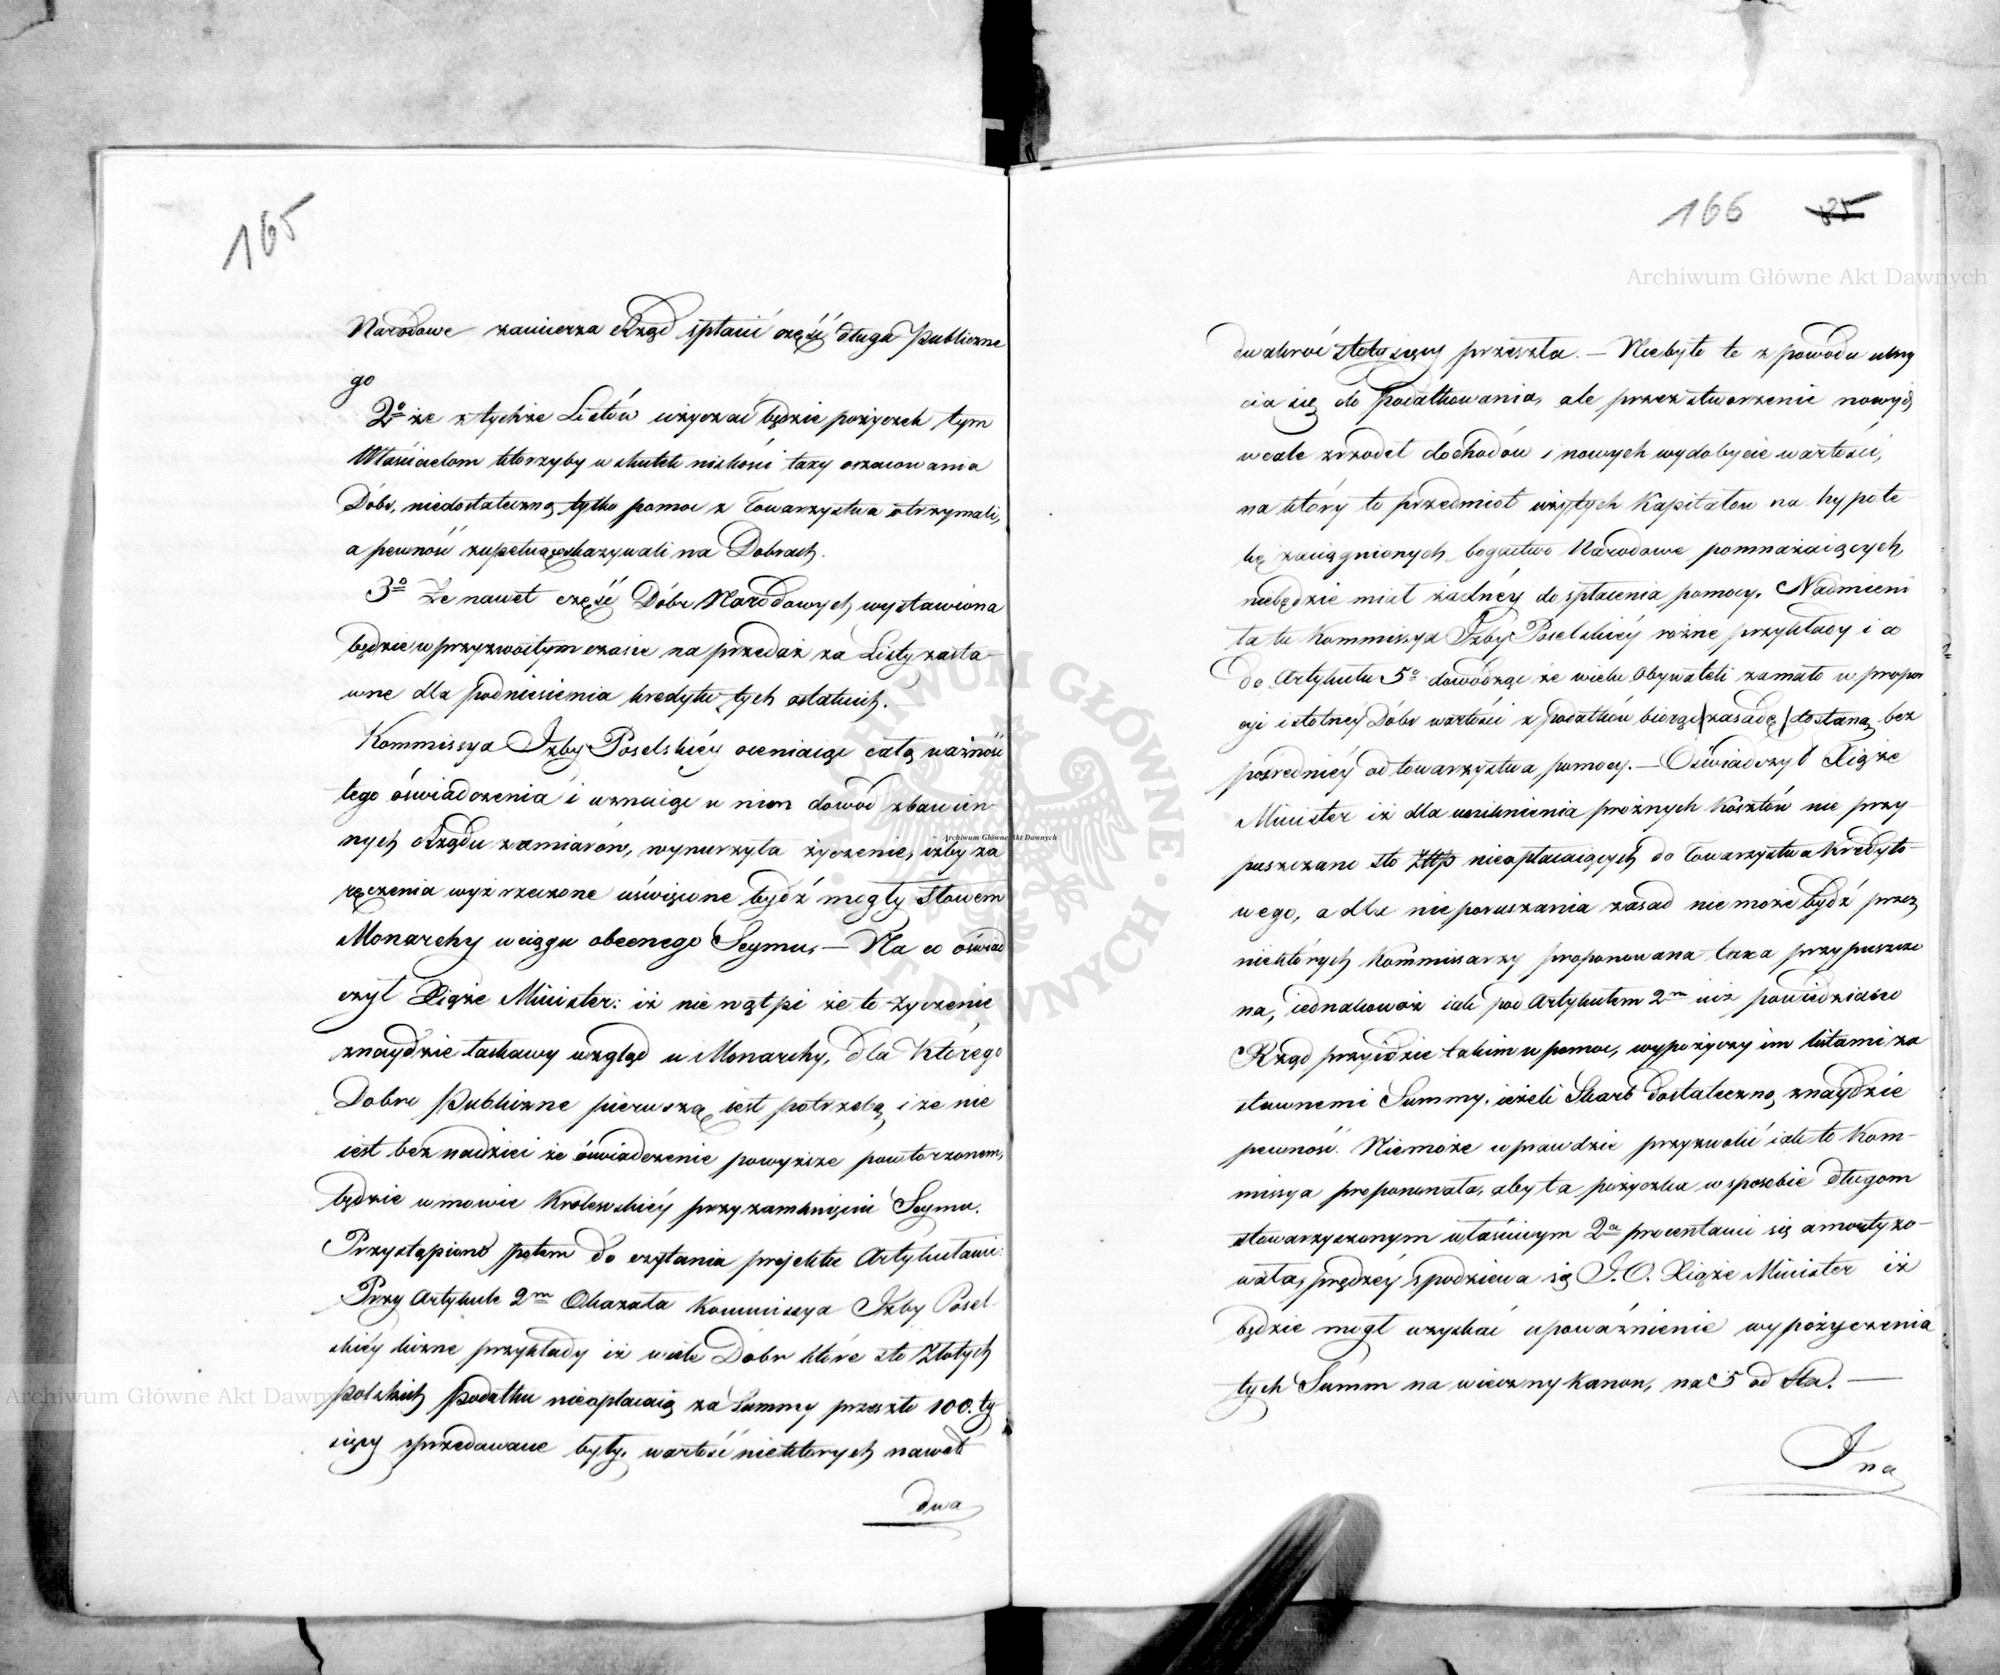 165
Narodowe zamierza Rząd spłacić część długu Publiczne
go
2o że z tychże Listów użyczać będzie pożyczek tym
Właścicielom którzyby w skutek niskości taxy oszacowania
Dóbr, niedostateczną tylko pomoc z Towarzystwa otrzymali,
a pewność zupełną okazywali na Dobrach.
3o Że nawet część Dóbr Narodowych wystawiona
będzie w przyzwoitym czasie na przedaż za Listy zasta-
wne dla podniesienia kredytu tych ostatnich.
Kommissya Izby Poselskiéy oceniaiąc całą ważność
tego óświadczenia i uznaiąc w nim dowód zbawien-
nych Rządu zamiarów, wynurzyła życzenie, iżby za
ręczenia wyż rzeczone uświęcone bydź mogły Słowem
Monarchy w ciągu obecnego Seymu. — Na co oświad
czył Xiąże Minister: iż nie wątpi że to życzenie
znaydzie łaskawy wzgląd u Monarchy, dla którego
Dobro Publiczne pierwszą iest potrzebą, i że nie
iest bez nadziei że óświadczenie powyższe powtorzonem,
będzie w mowie Krolewskiéy przy zamknięciu Seymu.
Przystąpiono potem do czytania projektu Artykułami:
Przy Artykule 2m Okazała Kommissya Izby Posel-
skiéy liczne przykłady iż wiele Dóbr które sto Złotych
polskich podatku nieopłacaią za Summy przeszło 100. ty
sięcy sprzedawane były, wartość niektorych nawet
dwa
166 85
dwakroć stotysięcy przeszła. — Niebyło to z powodu uchy
cia się do podatkowania, ale przez stworzenie nowych
wcale zrzodeł dochodów i nowych wydobycie wartości,
na który to przedmiot użytych Kapitałów na hypote-
kę zaciągnionych bogactwo Narodowe pomnażaiących,
niebędzie miał żadnéy do spłacenia pomocy. Nadmieni
ła tu Kommissya Izby Poselskiéy rożne przykłady i co
do Artykułu 5o dowodząc że wielu Obywateli zamało w propor
cyi istotney Dóbr wartości z podatków biorąc /zasadę/ dostaną bez
pośredniey od towarzystwa pomocy. — Oświadczył Xiąże
Minister iż dla uniknienia prożnych kosztów nie przy-
puszczano sto Złtp nieopłacaiących do Towarzystwa Kredyto-
wego, a dla nieporuszania zasad niemoże bydź przez
niektórych Kommissarzy proponowana taxa przypuszczo
na, iednakowoż iak pod Artykułem 2m iuż powiedziano
Rząd przyidzie takim w pomoc, wypożyczy im listami za
stawnemi Summy, ieżeli Skarb dostateczną znaydzie
pewność. Niemoże wprawdzie przyzwolić iak to Kom-
missya proponowała, aby ta pożyczka w sposobie długom
stowarzyszonym właściwym 2a procentami się amortyzo-
wała, prędzéy spodziewa się J.O. Xiąże Minister iż
będzie mogł uzyskać upoważnienie wypożyczenia
tych Summ na wieczny kanon, na 5 od sta. —
Ina
Archiwum Główne Akt Dawnych
Archiwum Główne Akt Dawnych
~ Archiwum Główne Akt Dawnych
ARCHIWUM GŁÓWNE AKT DAWNYCH